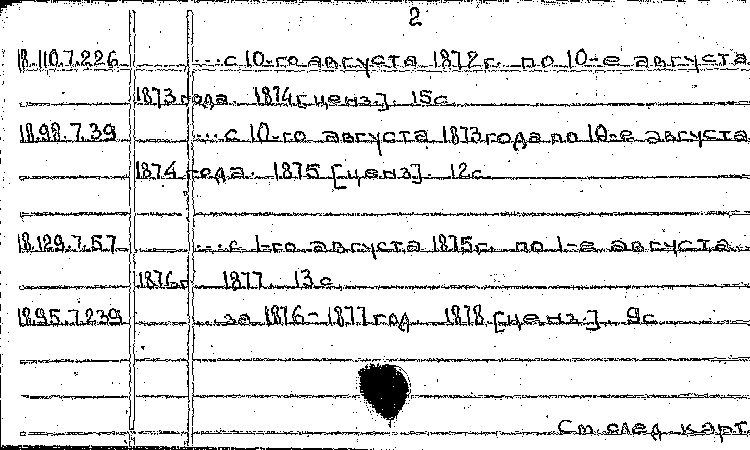 2
18.110.7.226 ...с 10-го августа 1872г. по 10-е августа
1873 года. 1874 [ценз.]. 15с.
18.98.7.39 ...с 10-го августа 1873 года по 10-е августа
1874 года. 1875 [ценз]. 12с.
18.129.7.57 ...с 1-го августа 1875г. по 1-е августа
1876г 1877. 13с.
18.95.7.239 ...за 1876-1877 год 1878 [ценз.]. 9с
См след карт